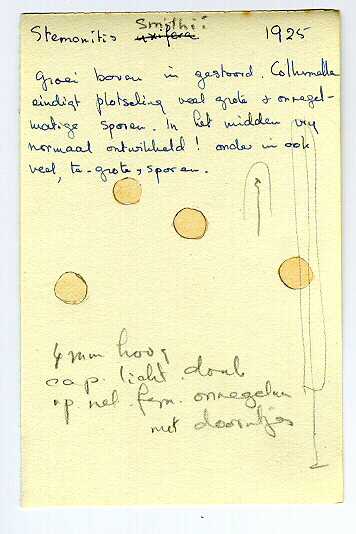 Smithii
Stemonitis uxifera 1925
Groei boven in gestoord. Collumella
eindigt plotseling veel grote + onregel-
matige sporen. In het midden vrij
normaal ontwikkeld! onder in ook
veel, te-grote, sporen.
4 mm hoog
cap. licht. donk
op. net. onregelm
met doorntjes